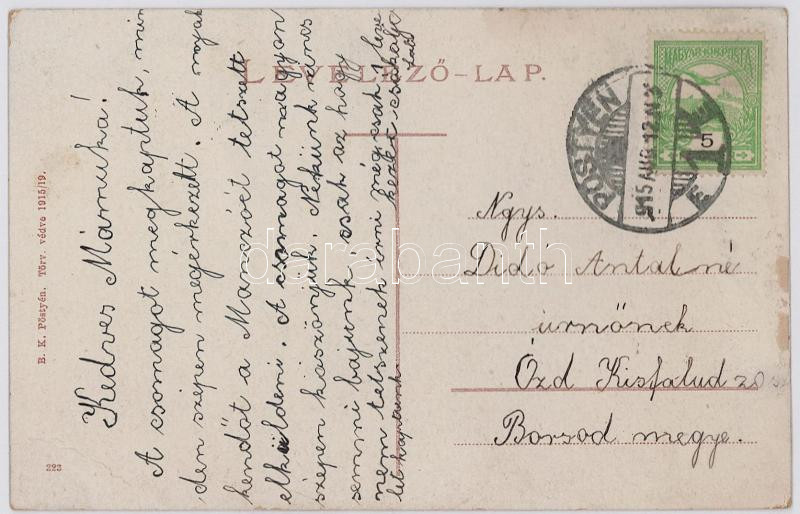 LEVELEZŐ-LAP.
MAGYAR KIR. POSTA
5
PÖSTYÉN
915 AUG. 12
1
B. K. Pöstyén. Törv. védve 1915/19.
223
Kedves Mámuka!
A csomagot megkaptuk, min
den szépen megérkezett. A nyak
kendőt a Manczóét tetszett
elküldeni. A csomagot nagyon
szépen köszönjük. Nekünk nincs
semmi bajunk, csak az hogy
nem tetszenek írni mégcsak 1 leve
let kaptunk.
Ngys.
Didó Antalné
úrnőnek
Ózd Kisfalud
Borsod megye.
darabanth